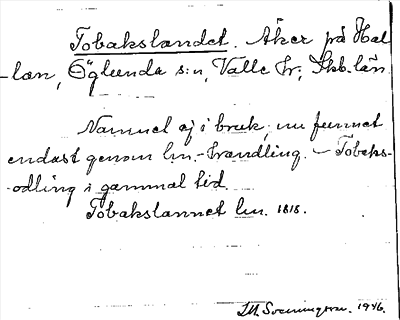 Tobakslandet. Åker på Hal-
län, Öglunda s:n, Valle hr, Skb. län
Namnet ej i bruk, nu funnet
endast genom lm.-handling. – Tobaks-
odling i gammal tid.
Tobakslannet lm. 1818.
M. Swenningson. 1946.